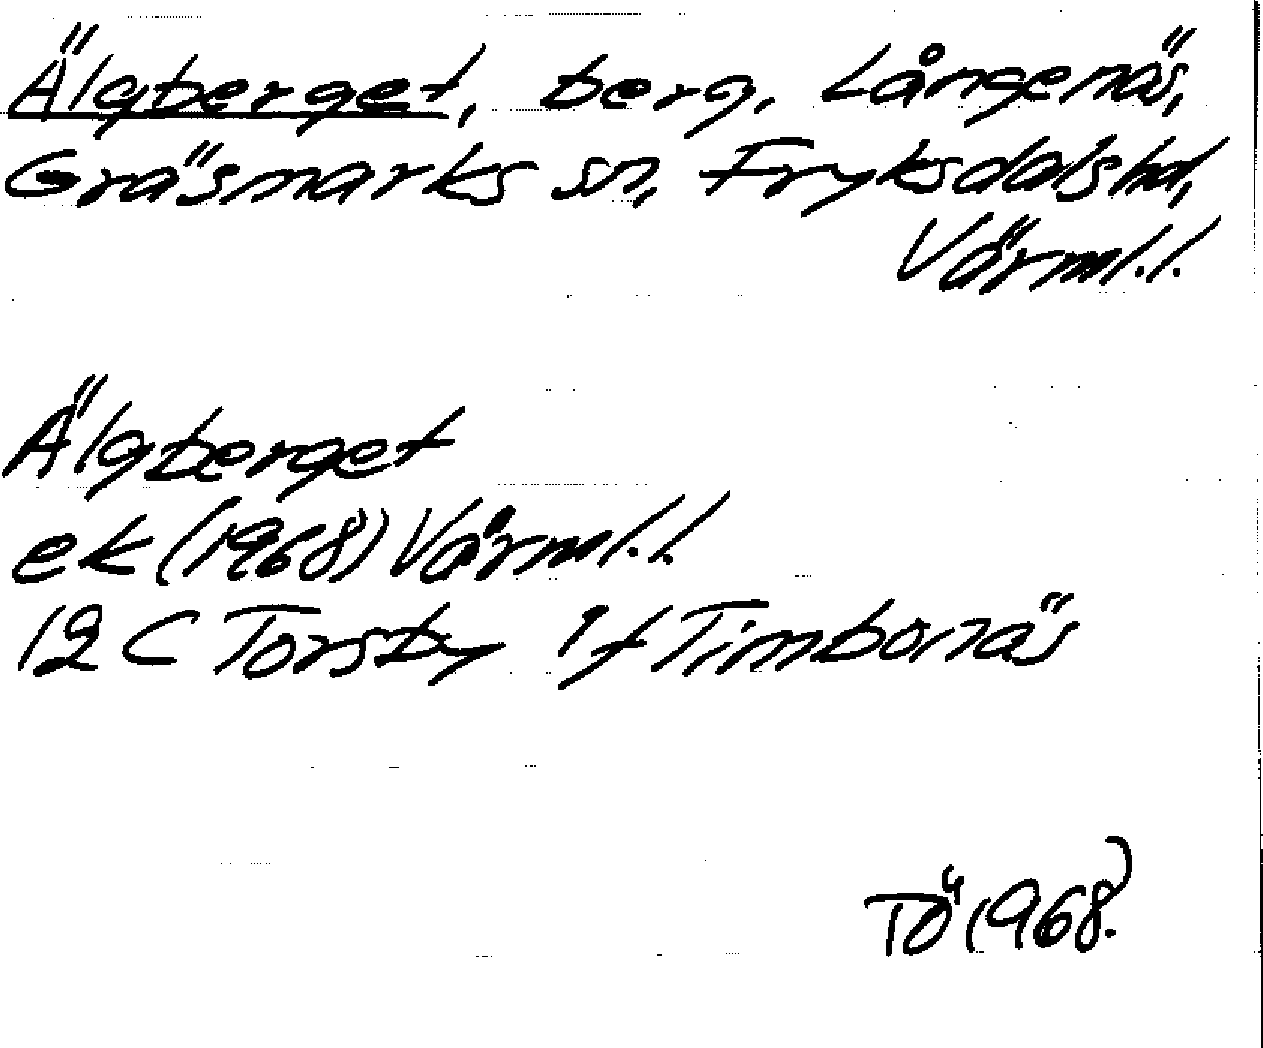 Älgberget, berg, Långenäs,
Gräsmarks sn, Fryksdalshd,
Värml.l.
Älgberget
ek (1968) Värml.l.
12 C Torsby 1f Timbonäs
TÖ (1968)